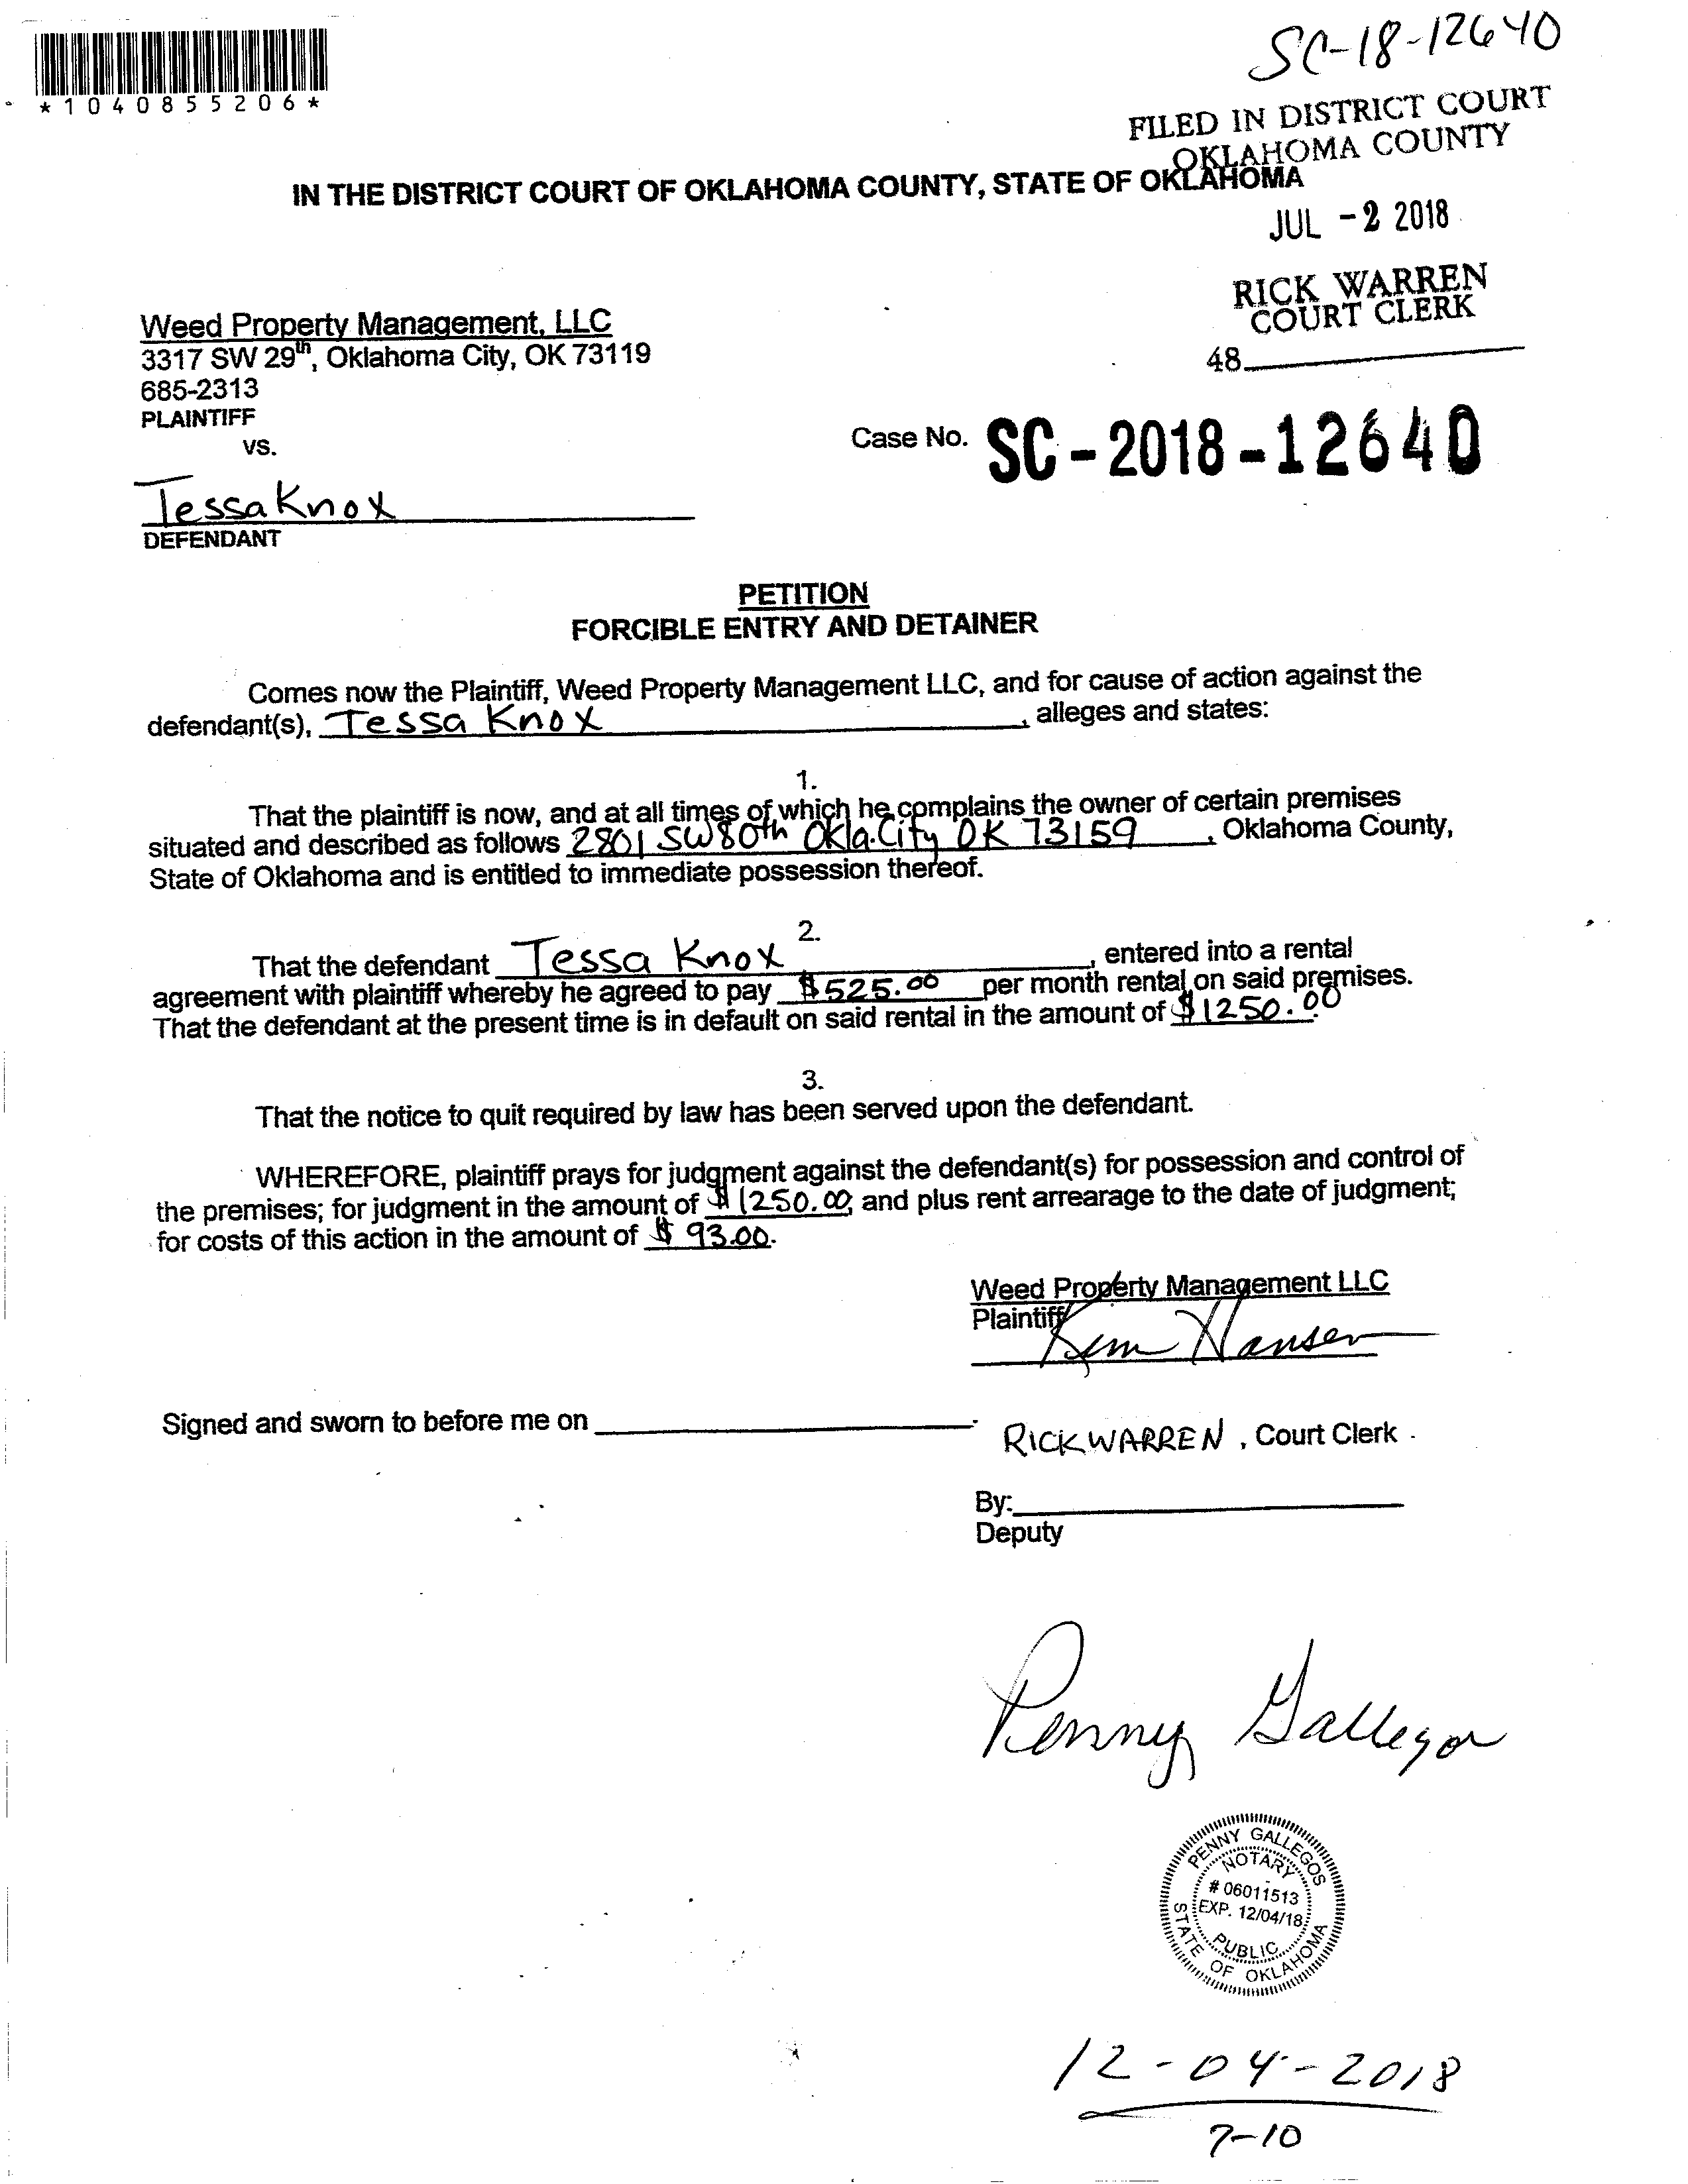 SC-18-12640
*1040855206*
FILED IN DISTRICT COURT
OKLAHOMA COUNTY
IN THE DISTRICT COURT OF OKLAHOMA COUNTY, STATE OF OKLAHOMA
JUL -2 2018
RICK WARREN
COURT CLERK
48
Weed Property Management, LLC
3317 SW 29th, Oklahoma City, OK 73119
685-2313
PLAINTIFF
VS.
Case No. SC-2018-12640
Tessa Knox
DEFENDANT
PETITION
FORCIBLE ENTRY AND DETAINER
Comes now the Plaintiff, Weed Property Management LLC, and for cause of action against the
defendant(s), Tessa Knox, alleges and states:
1.
That the plaintiff is now, and at all times of which he complains the owner of certain premises
situated and described as follows 2801 SW 80th Okla. City OK 73159, Oklahoma County,
State of Oklahoma and is entitled to immediate possession thereof.
2.
That the defendant Tessa Knox, entered into a rental
agreement with plaintiff whereby he agreed to pay $525.00 per month rental on said premises.
That the defendant at the present time is in default on said rental in the amount of $1250.00
3.
That the notice to quit required by law has been served upon the defendant.
WHEREFORE, plaintiff prays for judgment against the defendant(s) for possession and control of
the premises; for judgment in the amount of $1250.00, and plus rent arrearage to the date of judgment;
for costs of this action in the amount of $ 93.00.
Weed Property Management LLC
Plaintiff
Kim Hansen
Signed and sworn to before me on
RICK WARREN, Court Clerk
By:
Deputy
Penny Gallegos
PENNY GALLEGOS
NOTARY
# 06011513
EXP. 12/04/18
PUBLIC
STATE OF OKLAHOMA
12-04-2018
7-10